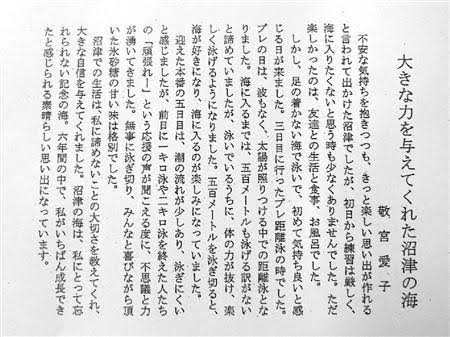 大きな力を与えてくれた沼津の海
敬宮愛子
不安な気持ちを抱きつつも、きっと楽しい思い出が作れる
と言われて出かけた沼津でしたが、初日から練習は厳しく、
海に入りたくないと思う時も少なくありませんでした。ただ
楽しかったのは、友達との生活と食事、お風呂でした。
しかし、足の着かない海で泳いで、初めて気持ち良いと感
じる日が来ました。三日目に行ったプレ距離泳の時でした。
プレの日は、波もなく、太陽が照りつける中での距離泳とな
りました。海に入るまでは、五百メートルも泳げる訳がない
と諦めていましたが、泳いでいるうちに、体の力が抜け、楽
しく泳げるようになりました。五百メートルを泳ぎ切ると、
海が好きになり、海に入るのが楽しみになっていました。
迎えた本番の五日目は、潮の流れが少しあり、泳ぎにくい
と感じましたが、前日に一キロ泳や二キロ泳を終えた人たち
の「頑張れー」という応援の声が聞こえる度に、不思議と力
が湧いてきました。無事に泳ぎ切り、みんなと喜びながら頂
いた氷砂糖の甘い味は格別でした。
沼津での生活は、私に諦めないことの大切さを教えてくれ、
大きな自信を与えてくれました。沼津の海は、私にとって忘
れられない記念の海。六年間の中で、私がいちばん成長でき
たと感じられる素晴らしい思い出になっています。